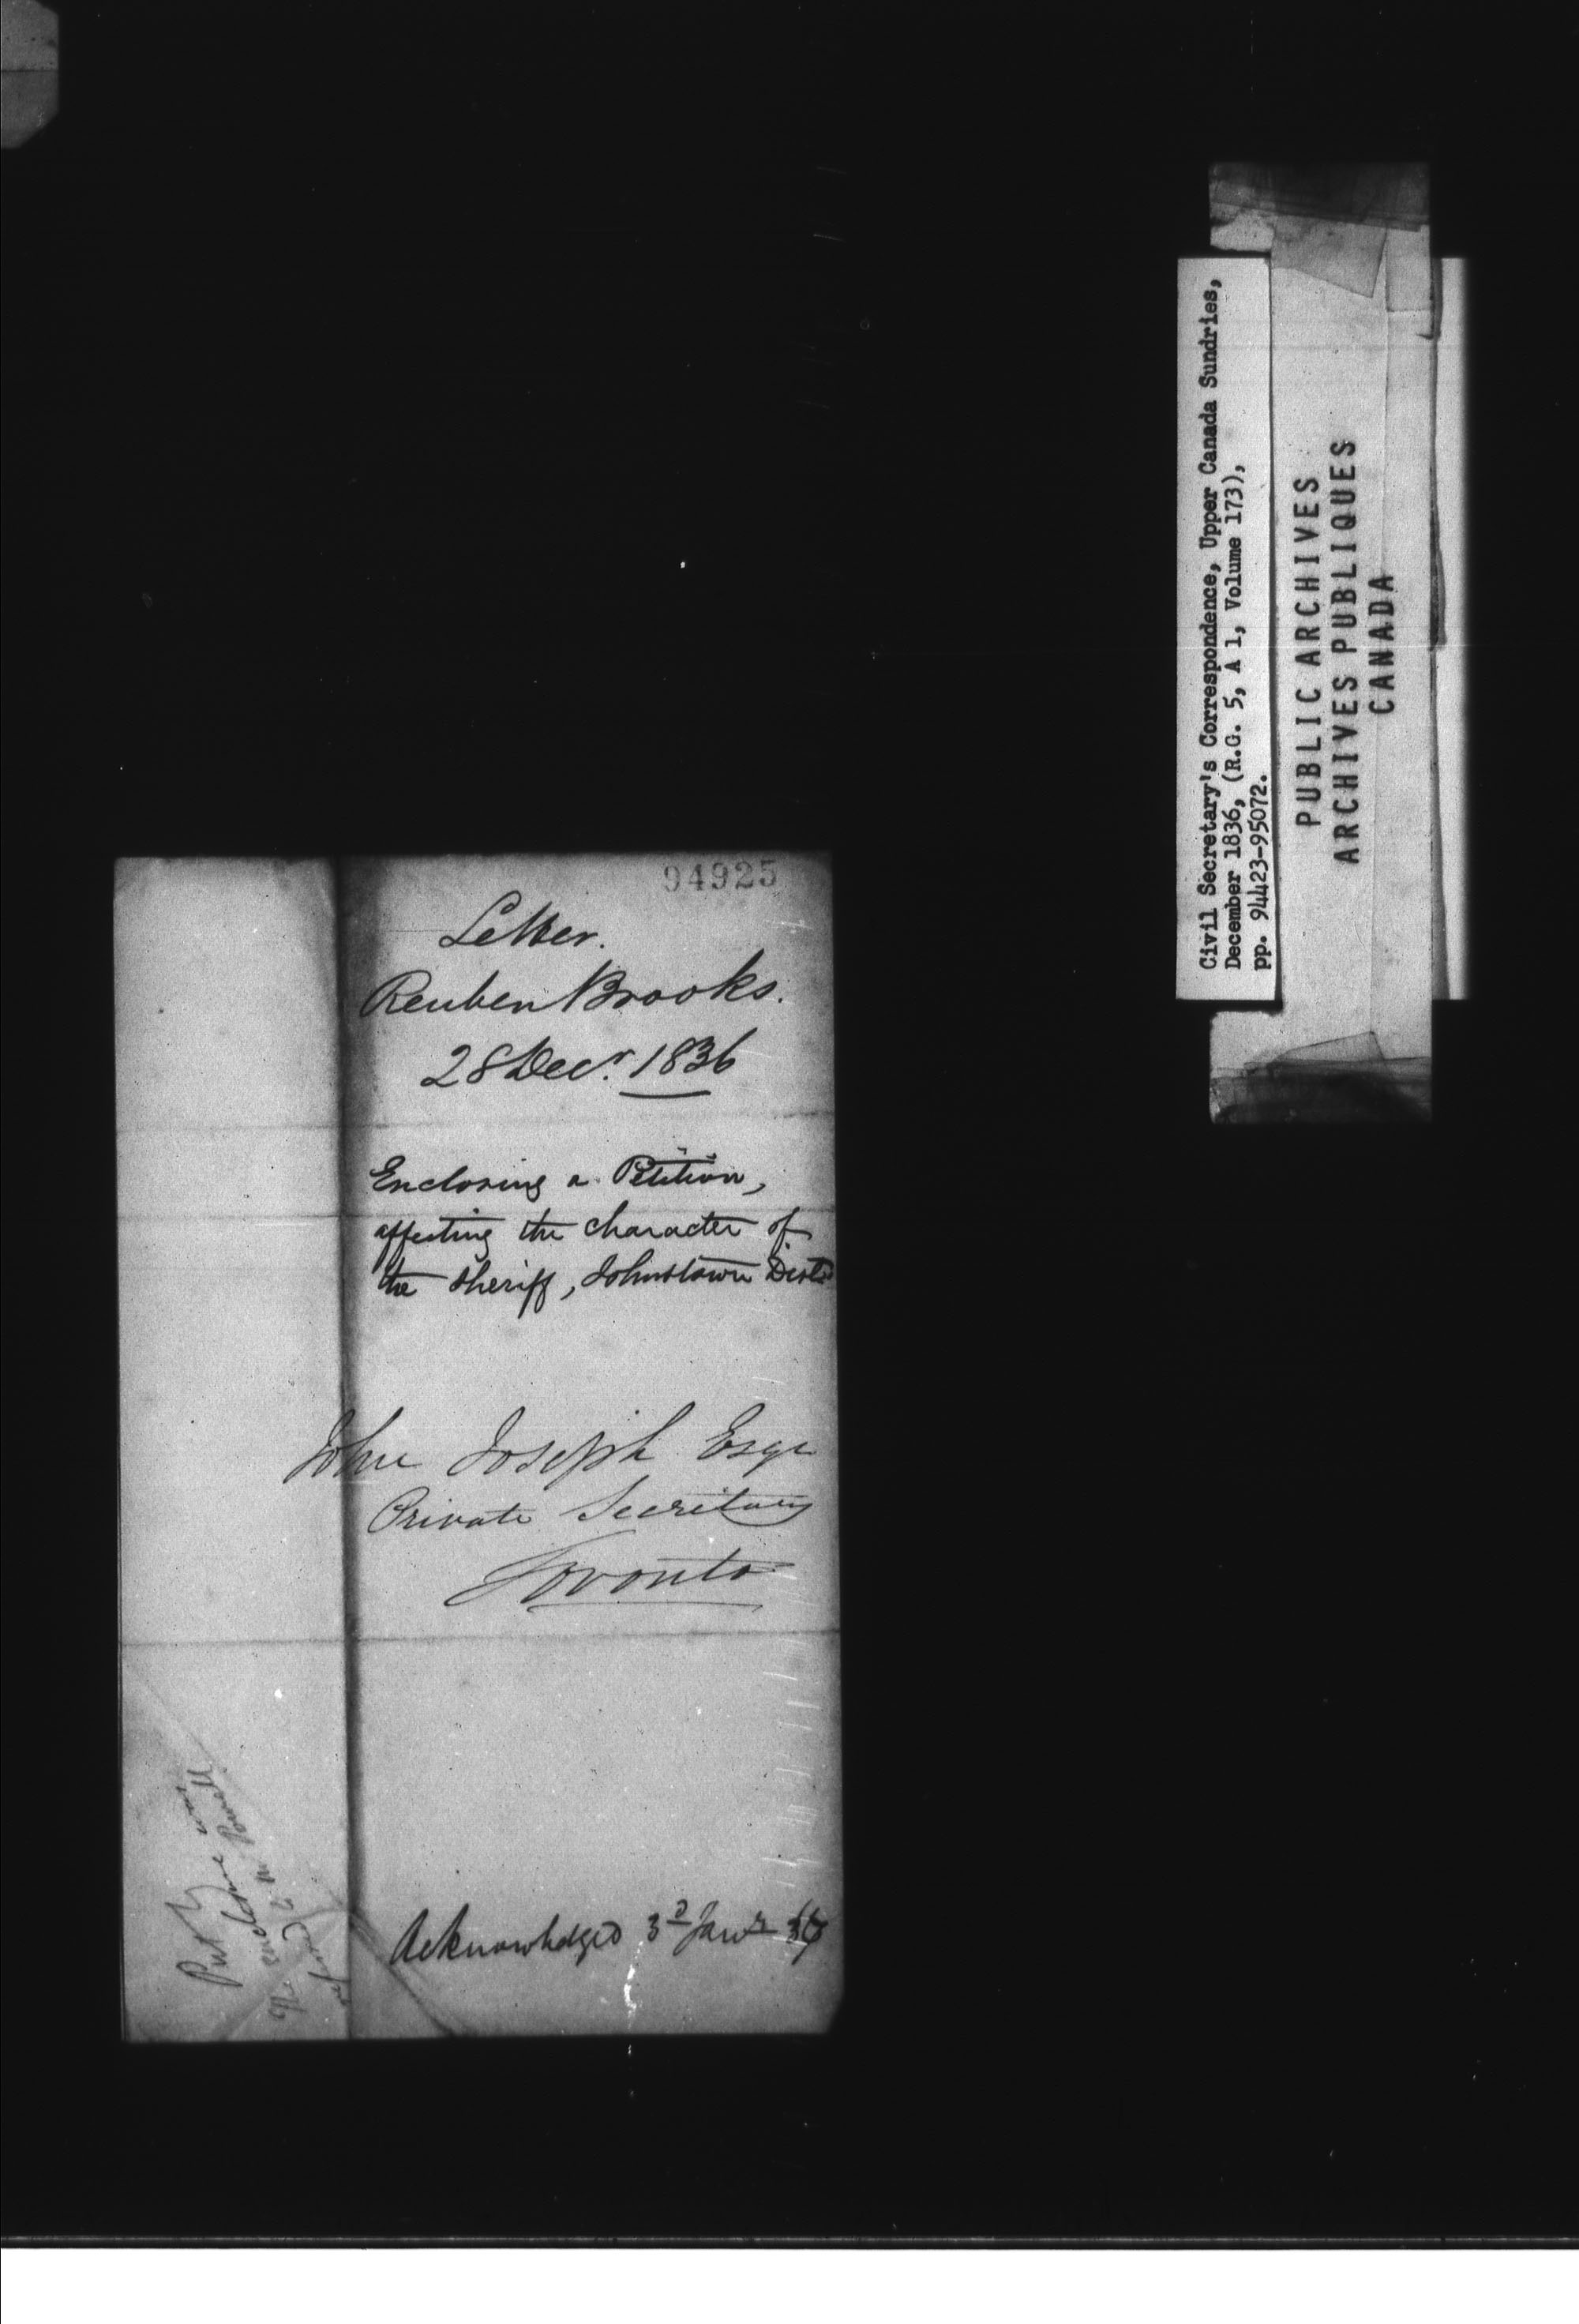 94925
Letter.
Reuben Brooks.
28 Decr. 1836
Enclosing a Petition,
affecting the character of
the Sheriff, Johnstown Dist
John Joseph Esqr
Private Secretary
Toronto
Acknowledged 3d Jany 37
Put By
The enclosure was
referred to Mr Powell
Civil Secretary's Correspondence, Upper Canada Sundries,
December 1836, (R.G. 5, A 1, Volume 173),
pp. 94423-95072.
PUBLIC ARCHIVES
ARCHIVES PUBLIQUES
CANADA